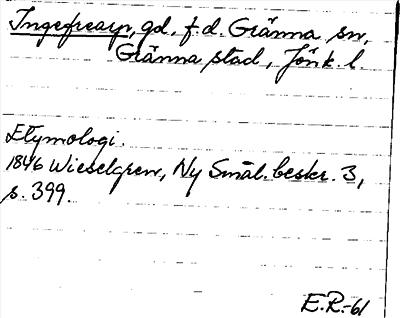 Ingefrearp, gd, f.d. Gränna sn,
Gränna stad, Jönk. l.
Etymologi.
1846 Wieselgren, Ny Smål. beskr. 3,
s. 399.
E.R.-61